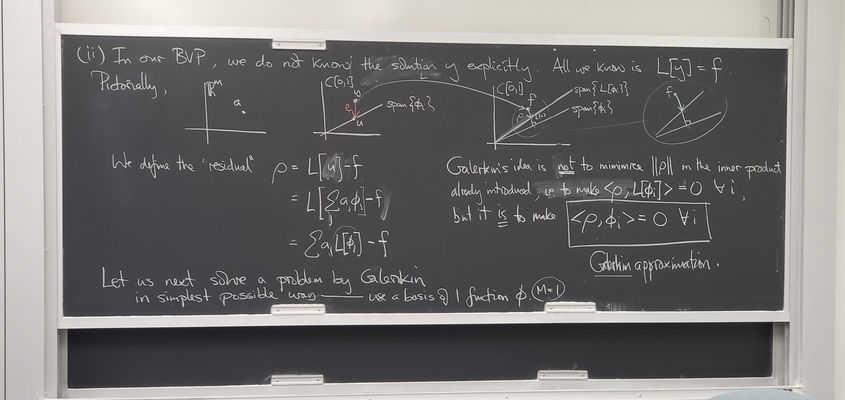 (ii) In our BVP, we do not know the solution y explicitly. All we know is L[y] = f
Pictorially,
ℝᴹ
a
C[0,1]
y
e
u
span{φᵢ}
L
C[0,1]
f
ρ
span{L[φᵢ]}
span{φᵢ}
f
We define the "residual" ρ = L[u] - f
= L[Σaᵢφᵢ] - f
= Σaᵢ L[φᵢ] - f
Galerkin's idea is not to minimize ||ρ|| in the inner product
already introduced, ie to make <ρ, L[φᵢ]> = 0 ∀ i,
but it is to make <ρ, φᵢ> = 0 ∀ i
Galerkin approximation.
Let us next solve a problem by Galerkin
in simplest possible way — use a basis of 1 function φ. (M=1)